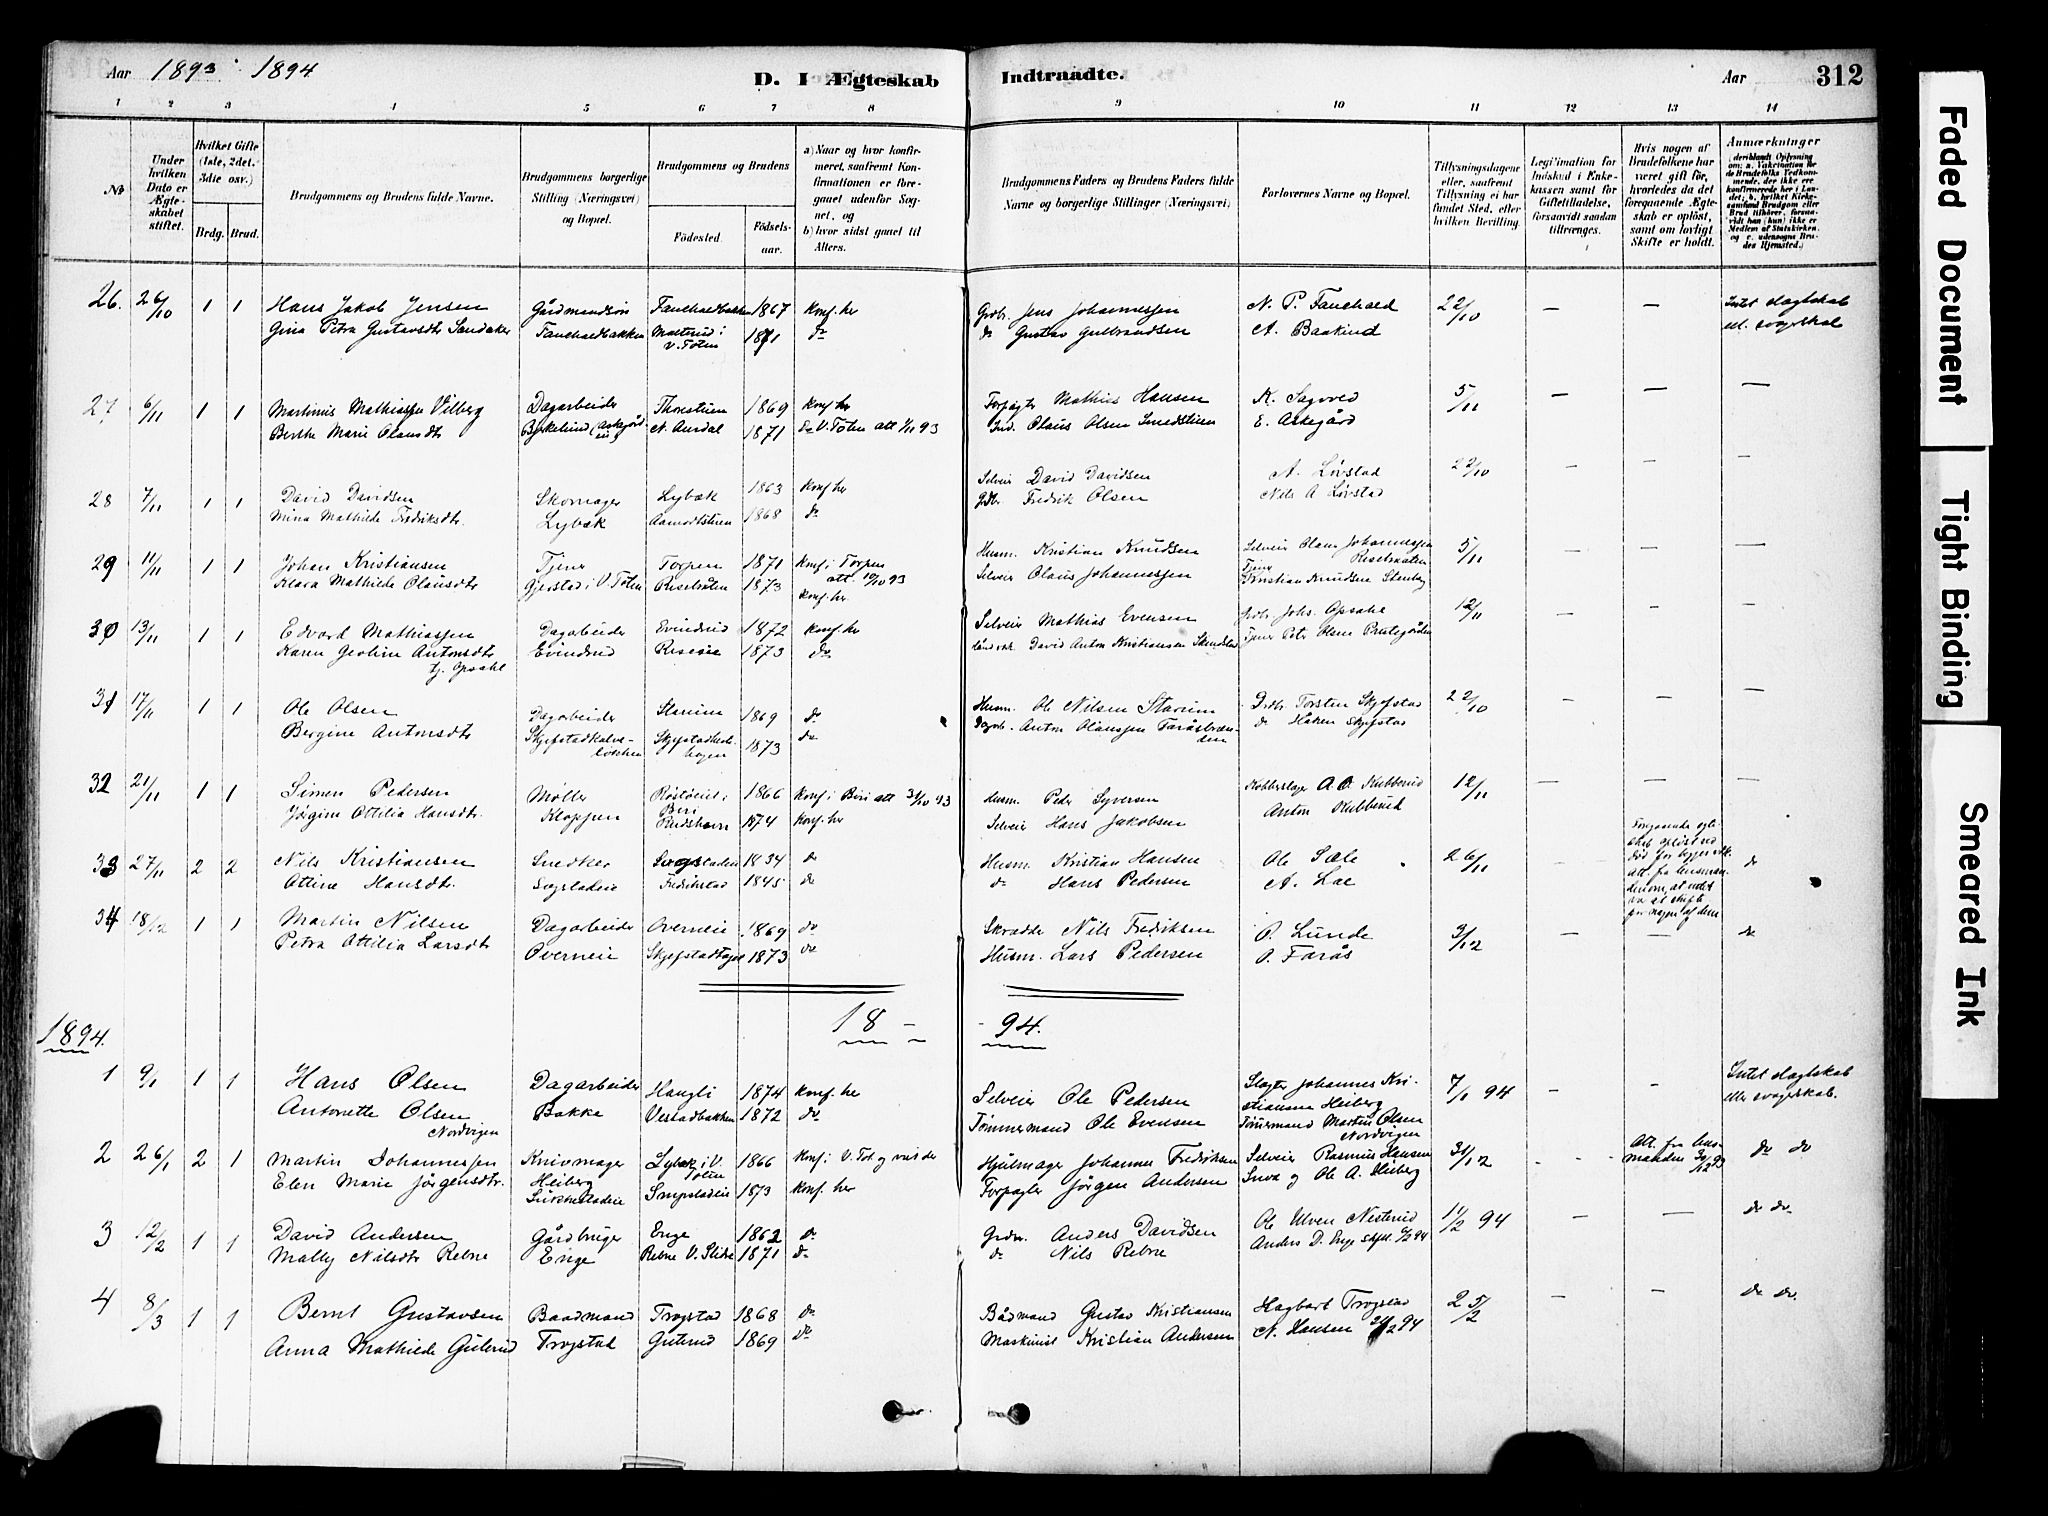 Aar 1893. 1894
D. I Ægteskab Indtraadte.
Aar 312
1 2 3 4 5 6 7 8 9 10 11 12 13 14
No
Under hvilken Dato er Ægteskabet stiftet.
Hvilket Gifte (1ste, 2det, 3die osv.)
Brdg. Brud.
Brudgommens og Brudens fulde Navne.
Brudgommens borgerlige Stilling (Næringsvei) og Bopæl.
Brudgommens og Brudens
Födested. Födselsaar.
a) Naar og hvor konfirmeret, saafremt Konfirmationen er foregaaet udenfor Sognet, og
b) hvor sidst gaaet til Alters.
Brudgommens Faders og Brudens Faders fulde Navne og borgerlige Stillinger (Næringsvei)
Forlovernes Navne og Bopæl.
Tillysningsdagene eller, saafremt Tillysning ei har fundet Sted, efter hvilken Bevilling.
Legitimation for Indskud i Enkekassen samt for Giftetilladelse, forsaavidt saadan tiltrænges.
Hvis nogen af Brudefolkene har været gift før, hvorledes da det foregaaende Ægteskab er opløst, samt om lovligt Skifte er holdt.
Anmærkninger
26. 26/10 1 1 Hans Jakob Jensen Gårdmandssøn Fauchaldbakken 1867 konf. her Grdbr. Jens Johannessen N. P. Fauchald 22/10 — — Intet slagtskab
Gina Petra Gustavsdtr Sandaker Fauchaldbakken Mælerud i V. Toten 1871 do do Gustav Gulbrandsen A. Baakind el. svogerskab
27 6/11 1 1 Martinus Mathiassen Vilberg Dagarbeider Thorestuen 1869 konf. her Forpagter Mathias Hansen K. Sagvod 5/11 — — —
Berthe Marie Olausdtr Birkelund N. Aurdal 1871 do V. Toten att 1/11 93 Ind. Olaus Olsen Smedstuen E. Askegård
28 7/11 1 1 David Davidsen Skomager Lybæk 1863 konf. her Selveier David Davidsen A. Løvstad 22/10 — — —
Mina Mathilde Fredriksdtr. Lybæk Aamodtstuen 1868 do Grdbr. Fredrik Olsen Nils A Løvstad
29 11/11 1 1 Johan Kristiansen Tjener Torpen 1871 konf. i Torpen att. 10/10 93 Husm. Kristian Knudsen Selveier Olaus Johannessen Risebraaten 5/11 — — —
Klara Mathilde Olausdtr Gjerstad i V. Toten Risebråten 1873 konf. her Selveier Olaus Johannessen Tjener Kristian Knudsen Stenberg
30 13/11 1 1 Edvard Mathiassen Dagarbeider Evindrud 1872 konf. her Selveier Mathias Evensen Grdb. Johs. Opsahl 12/11 — — —
Karen Geoline Antonsdtr Evindrud 1873 do David Anton Kristiansen Tjener Peter Olsen Prestegården
tj. Opsahl
31 17/11 1 1 Ole Olsen Dagarbeider Starum 1869 do Husm. Ole Nilsen Starum Grdb. Torsten Skjefstad 22/10 — — —
Bergine Antonsdtr 1873 do Anton Olaussen do Håken Skjefstad
32 21/11 1 1 Simen Pedersen Møller Biri 1866 konf. i Biri att 31/10 93 Husm. Peder Syversen Kobberslager A. O. Kubberud 12/11 — — —
Jørgine Ottilia Hansdtr. Kloppen Rudshavn 1874 konf. her Selveier Hans Jakobsen Anton Kubberud
33 27/11 2 2 Nils Kristiansen Snedker Sogstadeie 1834 do Husm. Kristian Hansen Ole Sæle 26/11 do
Ottine Hansdtr. Sogstadeie Fredrikstad 1845 do do Hans Pedersen A. Lae
34 18/12 1 1 Martin Nilsen Dagarbeider Overneie 1869 do Skrædder Nils Fredriksen O. Lunde 3/12 — — do
Petra Ottilia Larsdtr Overneie 1873 do Husm. Lars Pedersen O. Farås
18 — - 94.
1894.
1 9/1 1 1 Hans Olsen Dagarbeider Haugli 1874 konf. her Selveier Ole Pedersen Slagter Johannes Kristiansen Heiberg 7/1 94 — — Intet slagtskab
Antonette Olsen Nordvigen Bakke Vestadbakken 1872 do Tømmermand Ole Evensen Tømmermand Martin Olsen Nordvigen eller svogerskab.
2 26/1 2 1 Martin Johannessen Knivmager Heiberg Lybæk i V. Toten 1866 konf. i V. Tot. og viet der Hjulmager Johannes Fredriksen Selveier Rasmus Hansen 31/12 Att. fra lensmanden 30/12 93 do do
Elen Marie Jørgensdtr. 1873 konf. her Forpagter Jørgen Andersen og Ole A. Heiberg
3 12/2 1 1 David Andersen Gårdbruger Enge 1862 do Grdm. Anders Davidsen Ole Ulven Nesterud 11/2 94 — — do do.
Mally Nilsdtr Rebne Enge Rebne V. Slidre 1871 do do Nils Rebne Anders D. Enge
4 8/3 1 1 Bernt Gustavsen Baadmand Trogstad 1868 do Bådmand Gustav Kristiansen Hagbart Trogstad 25/2 — — do do.
Anna Mathilde Gulerud Trogstad Gulerud 1869 do Maskinist Kristian Andersen N. Hansen
Faded Document
Tight Binding
Smeared Ink